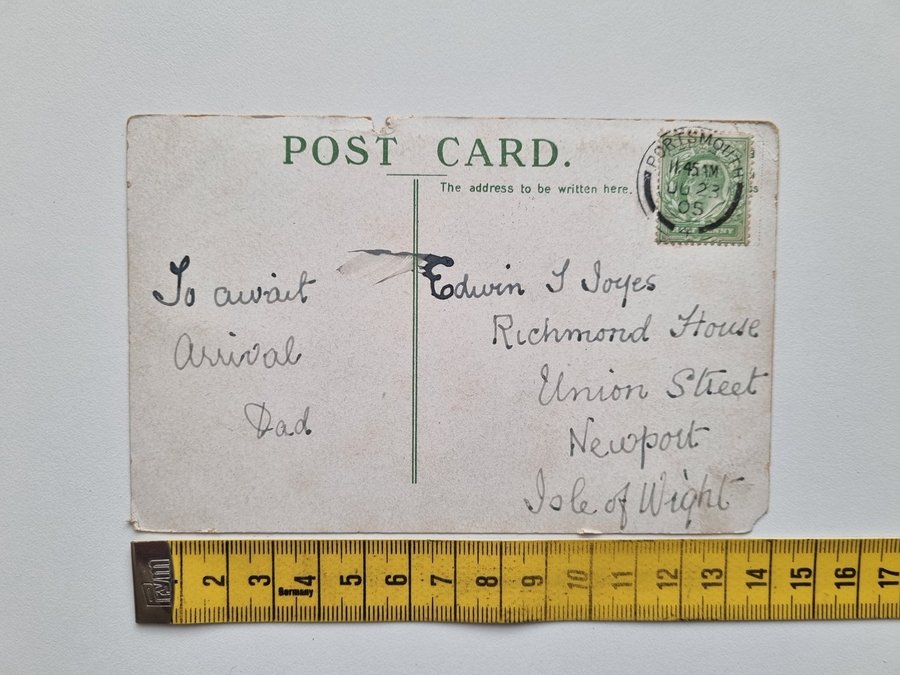 POST CARD.
The address to be written here.
PORTSMOUTH
11.45AM
UG 23
05
HALFPENNY
To await
Arrival
Dad
Edwin J Joyes
Richmond House
Union Street
Newport
Isle of Wight
2 3 4 5 6 7 8 9 10 11 12 13 14 15 16 17
Germany